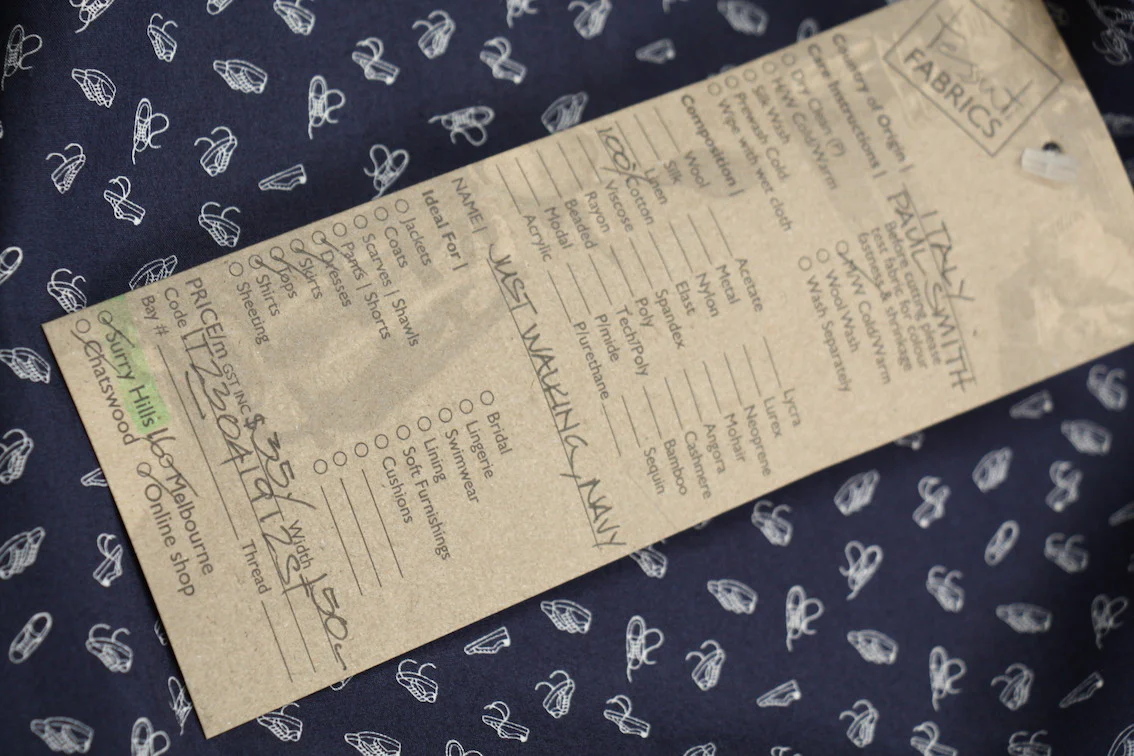 Tessuti
FABRICS
Country of Origin | ITALY
PAUL SMITH
Care Instructions |
Before cutting please
test fabric for colour
fastness & shrinkage
Dry Clean (?)
H/W Cold/Warm
Silk Wash
Prewash Cold
Wipe with wet cloth
M/W Cold/Warm
Wool Wash
Wash Separately
Composition |
Wool
Silk
Linen
100% Cotton
Viscose
Rayon
Beaded
Modal
Acrylic
Acetate
Metal
Nylon
Elast
Spandex
Poly
Tech/Poly
P/mide
P/urethane
Lycra
Lurex
Neoprene
Mohair
Angora
Cashmere
Bamboo
Sequin
NAME | JUST WALKING, NAVY
Ideal For |
Jackets
Coats
Scarves | Shawls
Pants | Shorts
Dresses
Skirts
Tops
Shirts
Sheeting
Bridal
Lingerie
Swimwear
Lining
Soft Furnishings
Cushions
PRICE/m GST INC $ 35/ Width 150
Code
Bay # Thread
Surry Hills Melbourne
Chatswood Online shop